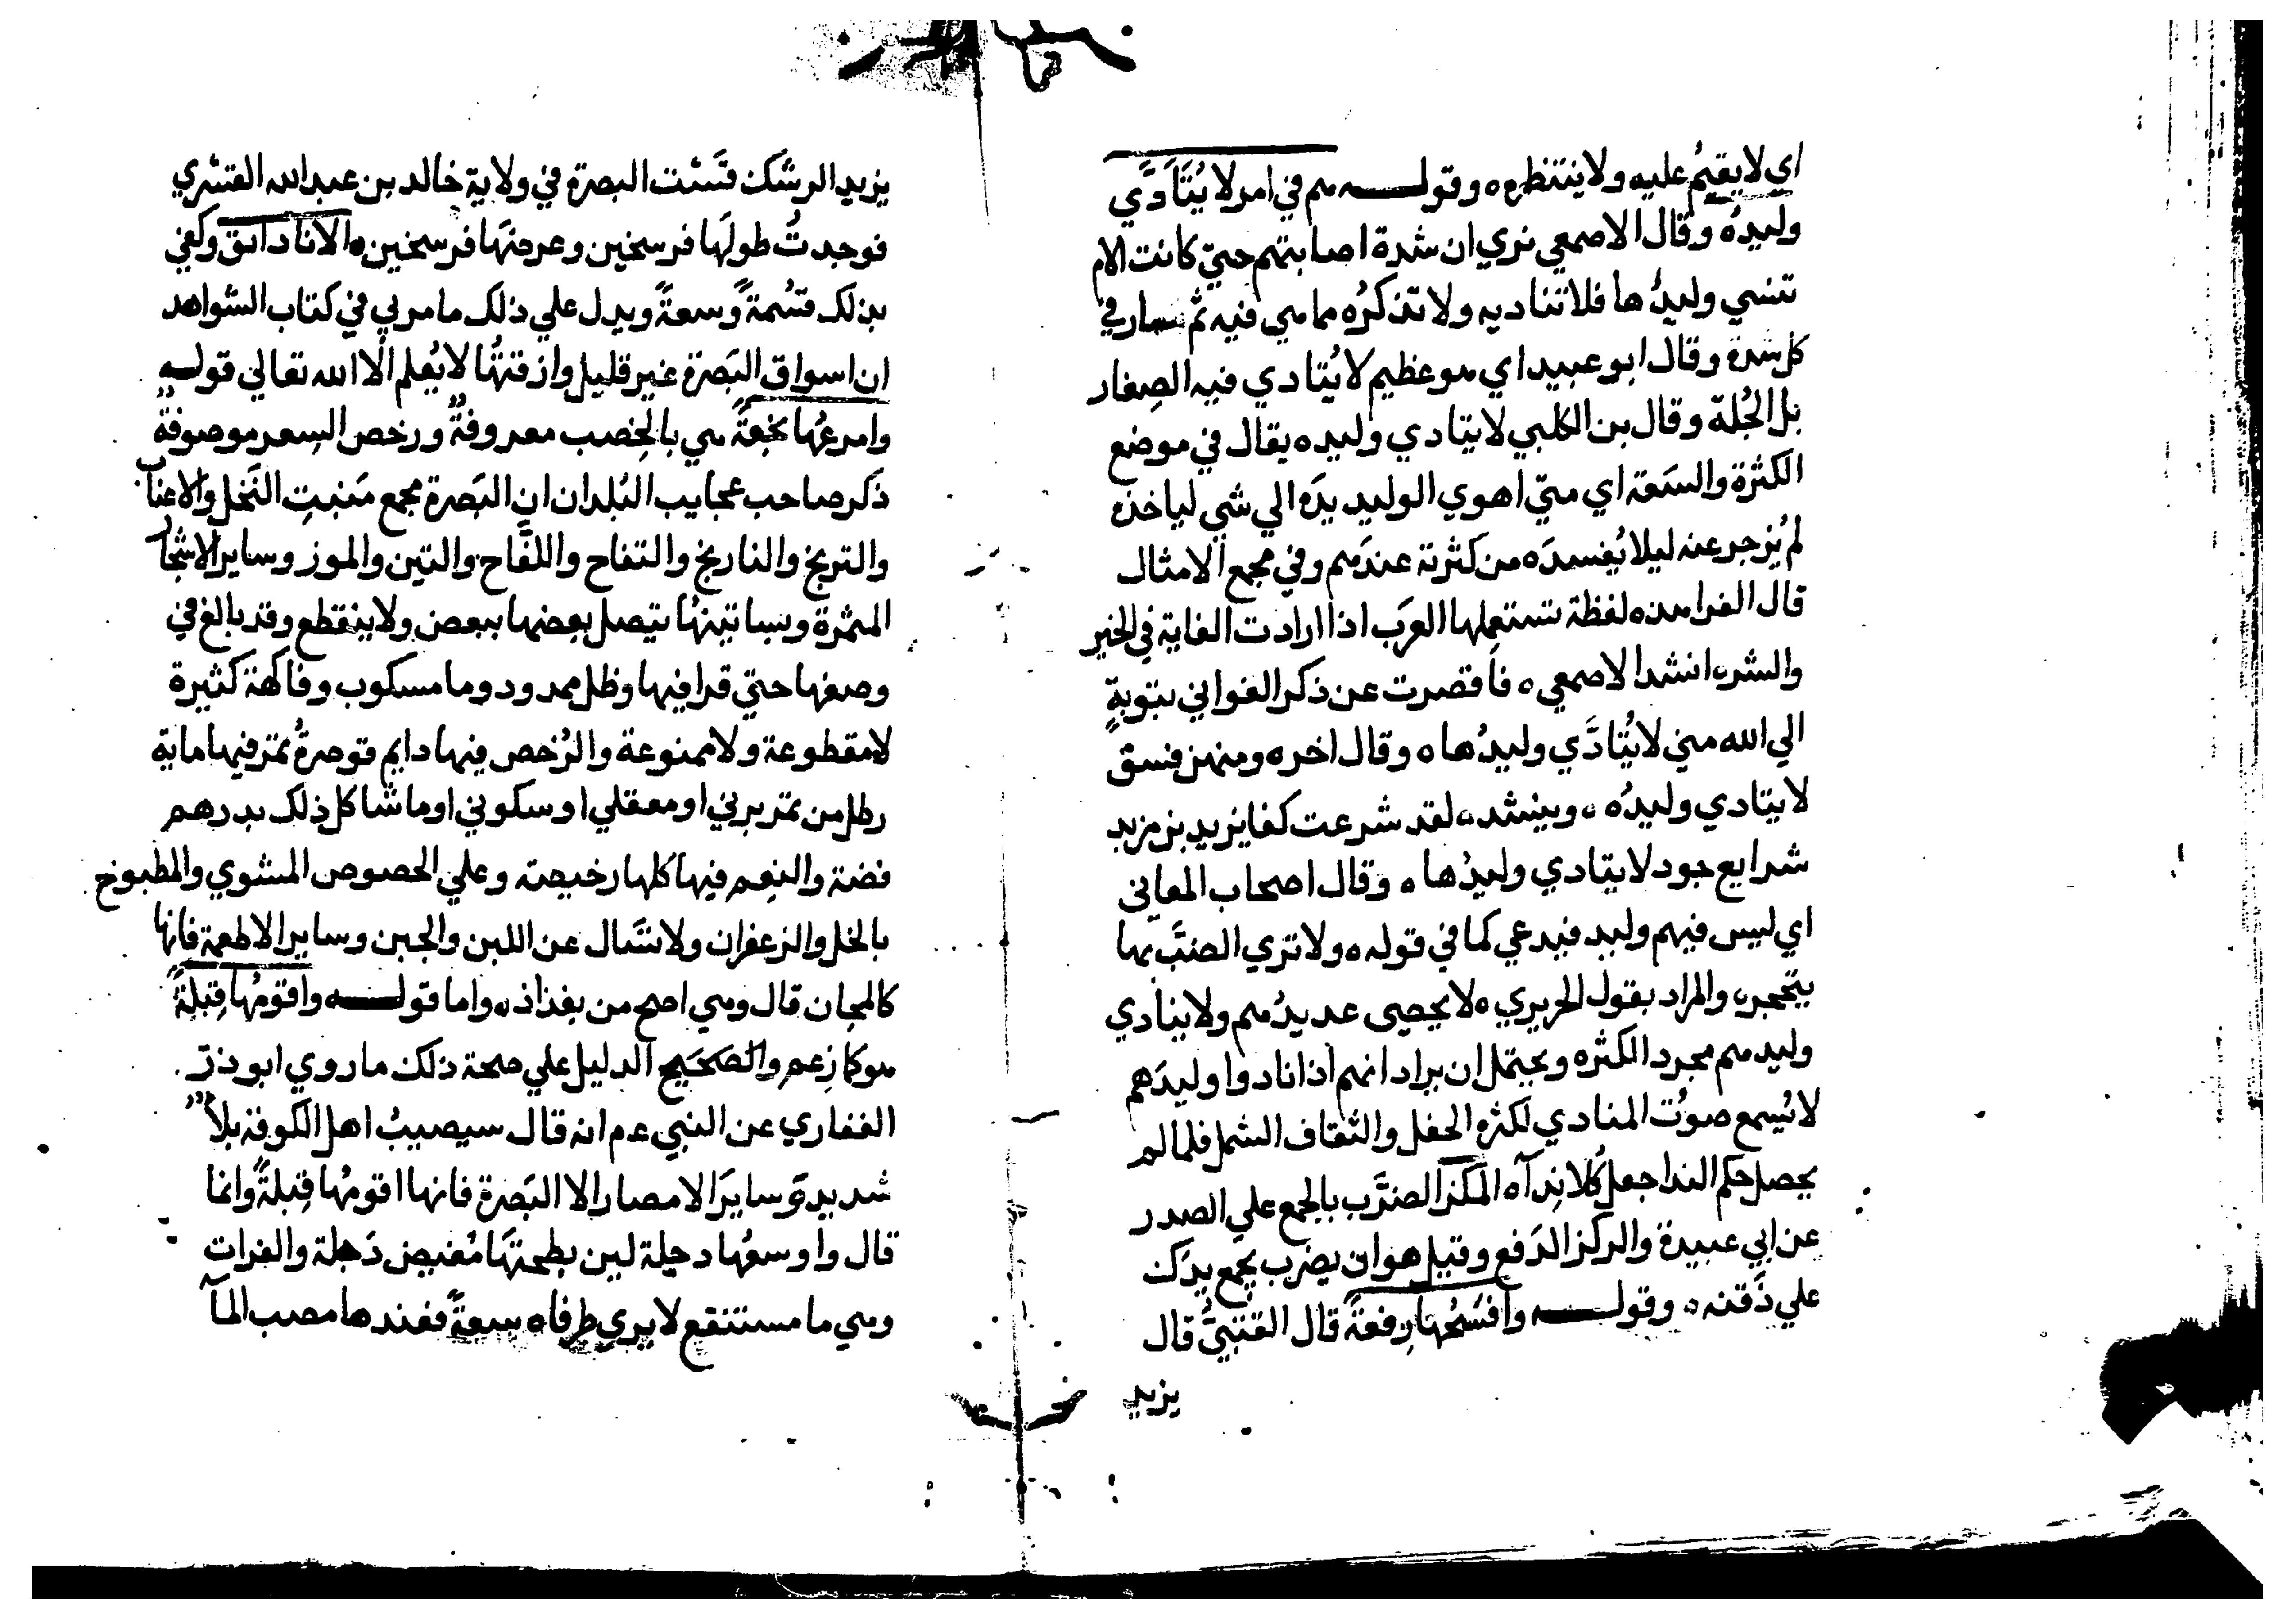 اي لا يقيم عليه ولا ينتظره وقولـــه هم في امر لا يُنَادَي
وليدُه وقال الاصمعي نري ان شدة اصابتهم حتي كانت الام
تنسي وليدُها فلا تناديه ولا تذكرُه مما هي فيه ثم صار في
كل شدة وقال ابو عبيد اي هو عظيم لا يُنادي فيه الصغار
بل الجُلة وقال بن الكلبي لا ينادي وليده يقال في موضع
الكثرة والسَعة اي متي اهوي الوليد يدَه الي شي لياخذه
لم يُزجر عنه ليلا يُفسدَه من كثرته عندهم وفي مجمع الامثال
قال الفرا هذه لفظة تستعملها العرَب اذا ارادت الغاية في الخير
والشر، انشد الاصمعي ه فاقصرت عن ذكر الغواني بتوبةٍ
الي الله مني لا يُنادَي وليدُها ه وقال اخره ومنهن فسق
لا ينادي وليدُه ، وينشد، لقد شرعت كفا يزيد بن مزيد
شرايع جود لا ينادي وليدُها ه وقال اصحاب المعاني
اي ليس فيهم وليد فيدعي كما في قوله ه ولا تري الضبَّ بها
ينجحر، والمراد بقول الحريري ه لا يحصي عديدُهم ولا ينادي
وليدهم مجرد الكثره ويحتمل ان يراد انهم اذا نادوا وليدَهم
لا يُسمع صوت المنادي لكثره الحفل والتفاف الشمل فلما لم
يحصل حكم الندا جعل كلا نِدآ ه الْمَكز الضرَّب بالجمع علي الصدر
عن ابي عبيدة والركز الدَفع وقيل هو ان يضرب بجمع يدك
علي ذَقنه ، وقولـــه وافسَحُها رِقعةً قال القتبيُّ قال
يزيد
يزيد الرشك قسَّت البصرة في ولاية خالد بن عبد الله القشري
فوجدتُ طولَها فرسخين وعرضَها فرسخين ه الا نادانق وكفي
بذلك قسْمةً وسعةً ويدل علي ذلك ما مر بي في كتاب الشواهد
ان اسواق البَصرة غير قليل وازقتَها لا يُعلم الّا الله تعالي قولـه
وامرعُها نجْعةً هي بالخِصب معروفةٌ ورخص السِعر موصوفةٌ
ذكر صاحب عجايب البُلدان ان البَصرة مجمع مَنبتِ النَخل والاعناب
والترنج والنارنج والتفاح واللفَّاح والتين والموز وساير الاشجار
المثمرة وبساتينهُا يتصل بعضها ببعض ولا ينقطع وقد بالغ في
وصفها حتي قرا فيها وظل ممدود وما مسكوب وفاكهة كثيرة
لا مقطوعة ولا ممنوعة والرُخص فيها دايم قوصرةُ تمر فيها ماية
رطل من تمر برني او معقلي او سكوني او ما شاكل ذلك بدرهم
فضة والنِعم فيها كلها رخيصة وعلي الخصوص المشوي والمطبوخ
بالخل والزعفران ولا تسَال عن اللبن والجبن وساير الاطعمة فانها
كالمجان قال وهي اصح من بغذاذ، واما قولـــه واقومُها قِبلةً
هو كما زعم والصَحيح الدليل علي صحة ذلك ما روي ابو ذر
الغفاري عن النبي عم انه قال سيصيبُ اهل الكوفة بلاٌ
شديد وَسايرَ الامصار الا البَصرة فانها اقومُها قِبلةً وانما
قال واوسعُها دجلة لين بطحتها مُغيض دَجلة والفرات
وهي ما مستنقع لا يري طرفاه سعةً فعندها مصب المآ